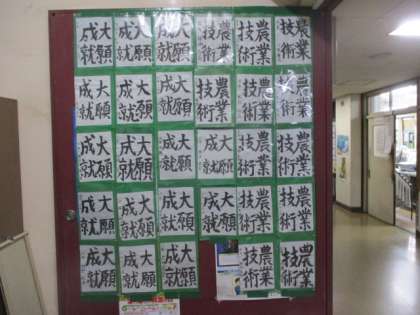 農業
技術
農業
技術
農業
技術
大願
成就
大願
成就
大願
成就
農業
技術
農業
技術
農業
技術
大願
成就
大願
成就
大願
成就
農業
技術
農業
技術
大願
成就
大願
成就
大願
成就
大願
成就
農業
技術
農業
技術
大願
成就
大願
成就
大願
成就
大願
成就
農業
技術
農業
技術
大願
成就
大願
成就
大願
成就